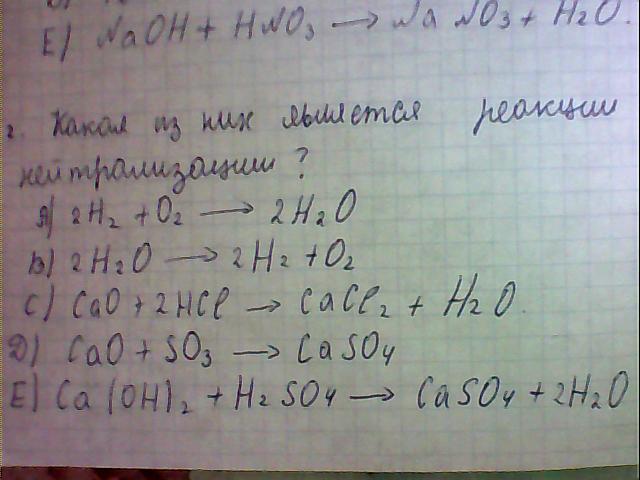 E) NaOH + HNO₃ → NaNO₃ + H₂O.
2. Какая из них является реакции
нейтрализации?
A) 2H₂ + O₂ → 2H₂O
B) 2H₂O → 2H₂ + O₂
C) CaO + 2HCl → CaCl₂ + H₂O.
D) CaO + SO₃ → CaSO₄
E) Ca(OH)₂ + H₂SO₄ → CaSO₄ + 2H₂O